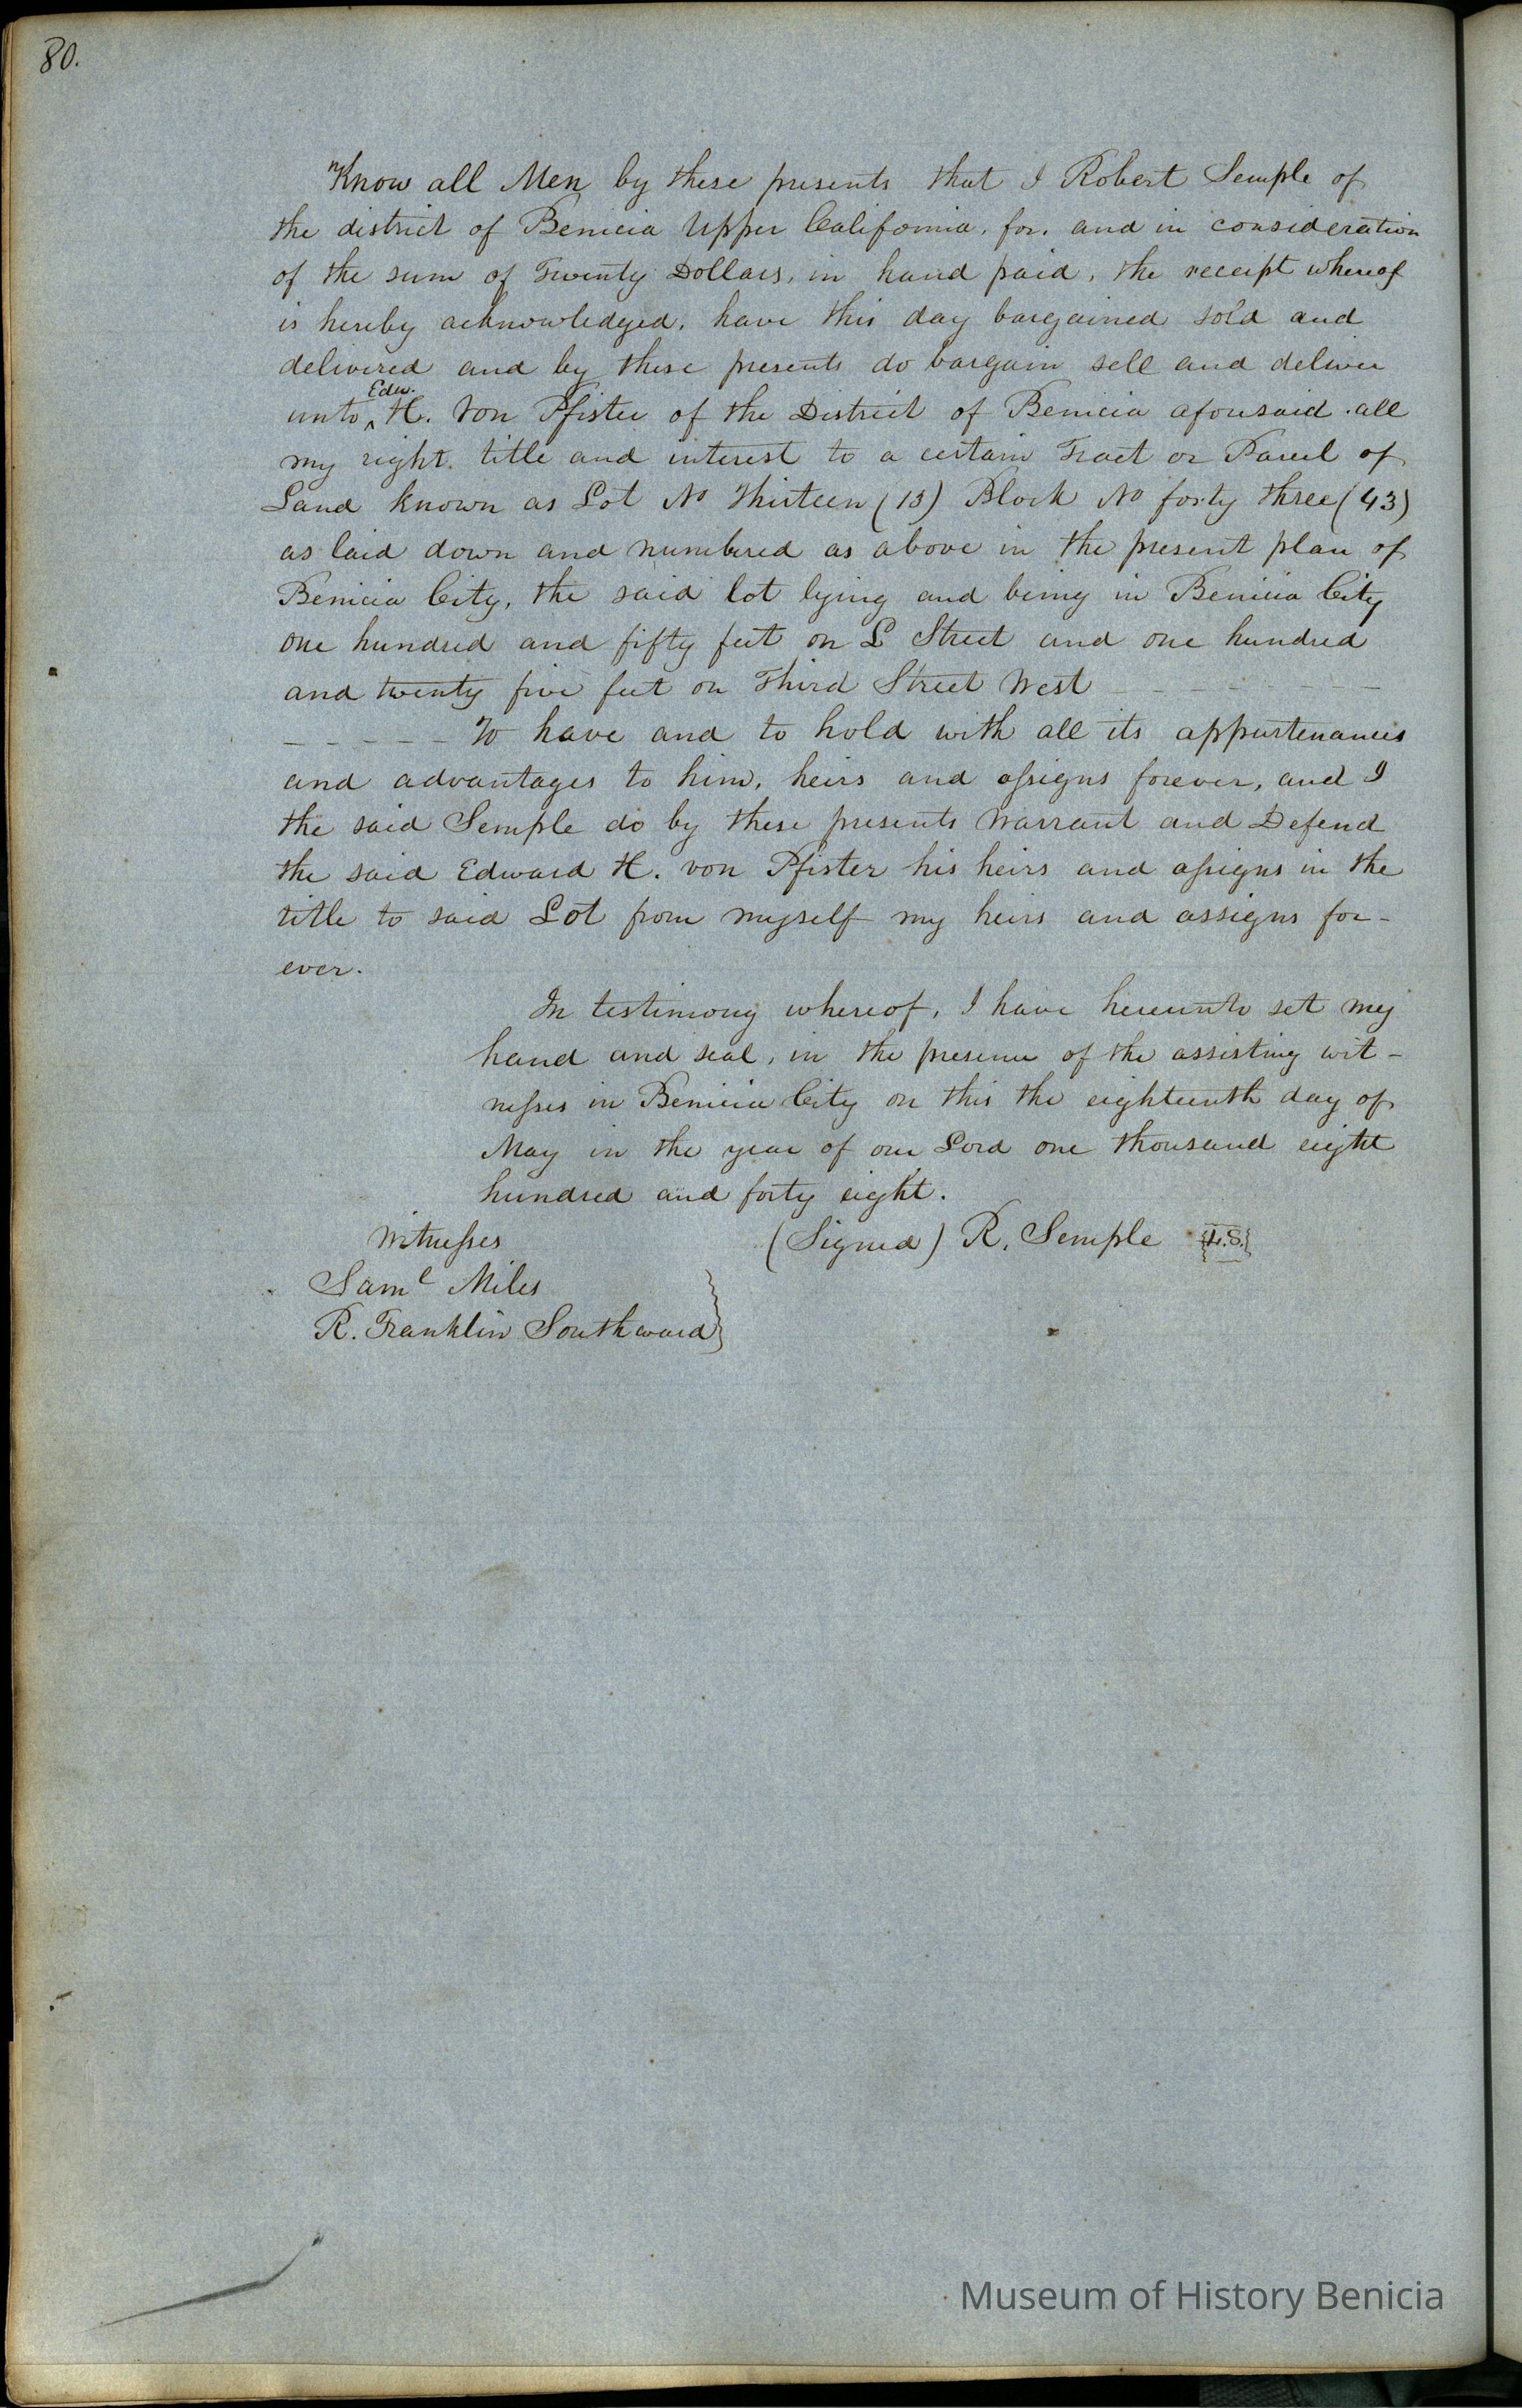 80.
Know all Men by these presents that I Robert Semple of
the district of Benicia Upper California, for, and in consideration
of the sum of Twenty Dollars, in hand paid, the receipt whereof
is hereby acknowledged, have this day bargained sold and
delivered and by these presents do bargain sell and deliver
Edw.
unto ^ H. Von Pfister of the District of Benicia aforesaid. all
my right title and interest to a certain Tract or Parcel of
Land known as Lot No Thirteen (13) Block No forty three (43)
as laid down and numbered as above in the present plan of
Benicia City, the said lot lying and being in Benicia City
one hundred and fifty feet on L Street and one hundred
and twenty five feet on Third Street West - - - - - - -
- - - - - To have and to hold with all its appurtenances
and advantages to him, heirs and assigns forever, and I
the said Semple do by these presents Warrant and Defend
the said Edward H. von Pfister his heirs and assigns in the
title to said Lot from myself my heirs and assigns for-
ever.
In testimony whereof, I have hereunto set my
hand and seal, in the presence of the assisting wit-
nesses in Benicia City on this the eighteenth day of
May in the year of our Lord one thousand eight
hundred and forty eight.
Witnesses (Signed) R. Semple {L.S.}
Saml Miles
R. Franklin Southward }
Museum of History Benicia